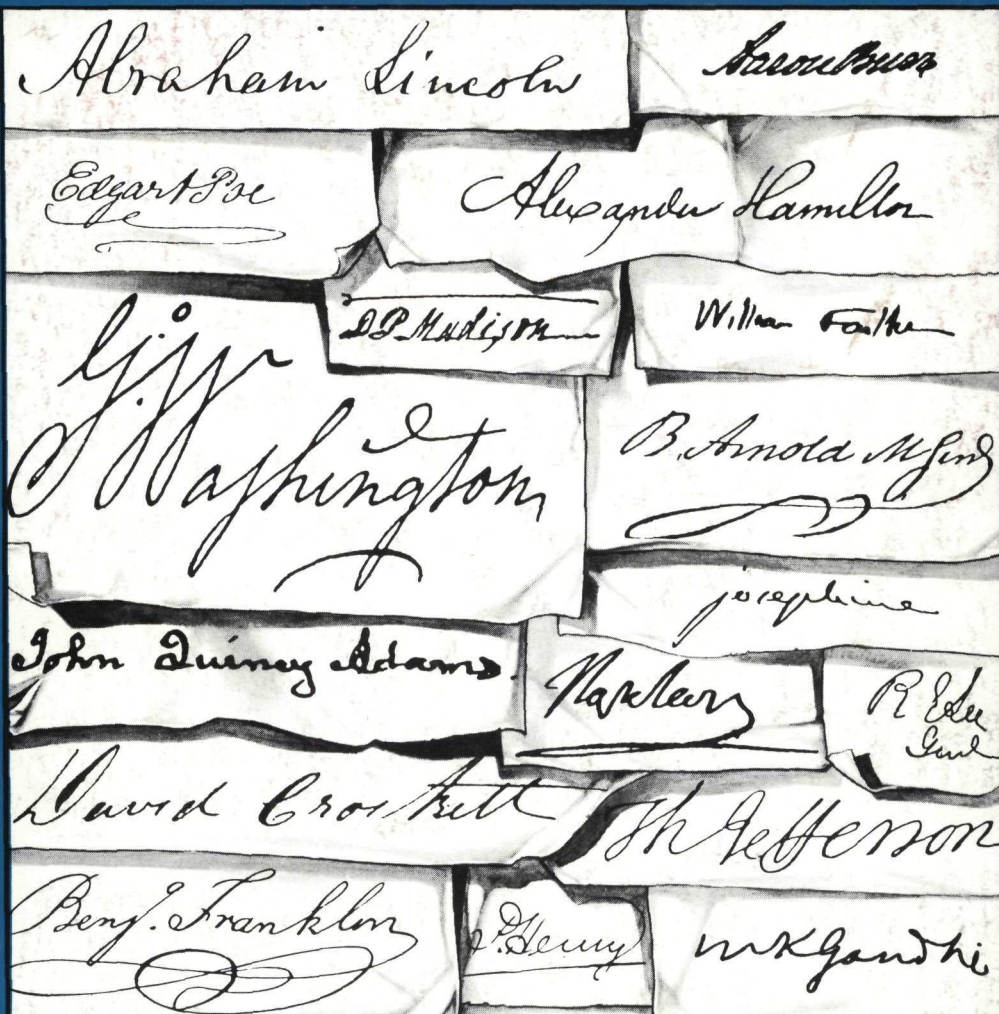 Abraham Lincoln
Aaron Burr
Edgar A Poe
Alexander Hamilton
D. P. Madison
William Faulkner
G. Washington
B. Arnold M Genl
josephine
John Quincy Adams
Napoleon
R E Lee
Genl
David Crockett
Th Jefferson
Benj. Franklin
P. Henry
MKGandhi